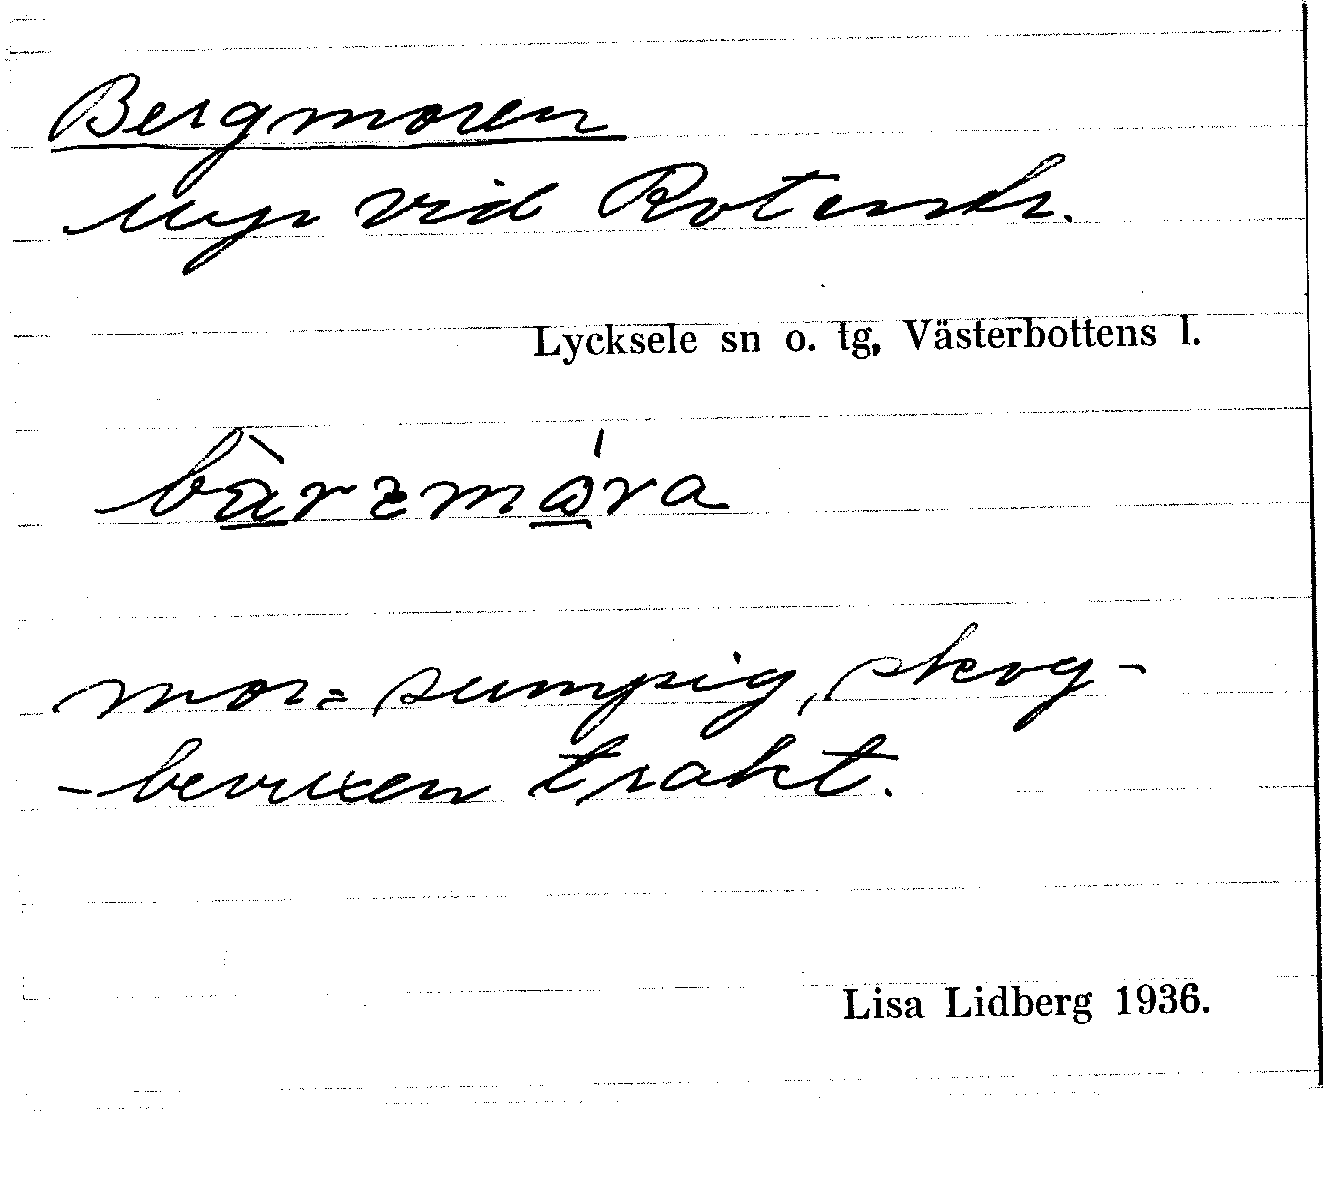 Bergmoren
Myr vid Rotenstr.
Lycksele sn o. tg, Västerbottens l.
mor = sumpig, skog-
-bevuxen trakt.
Lisa Lidberg 1936.